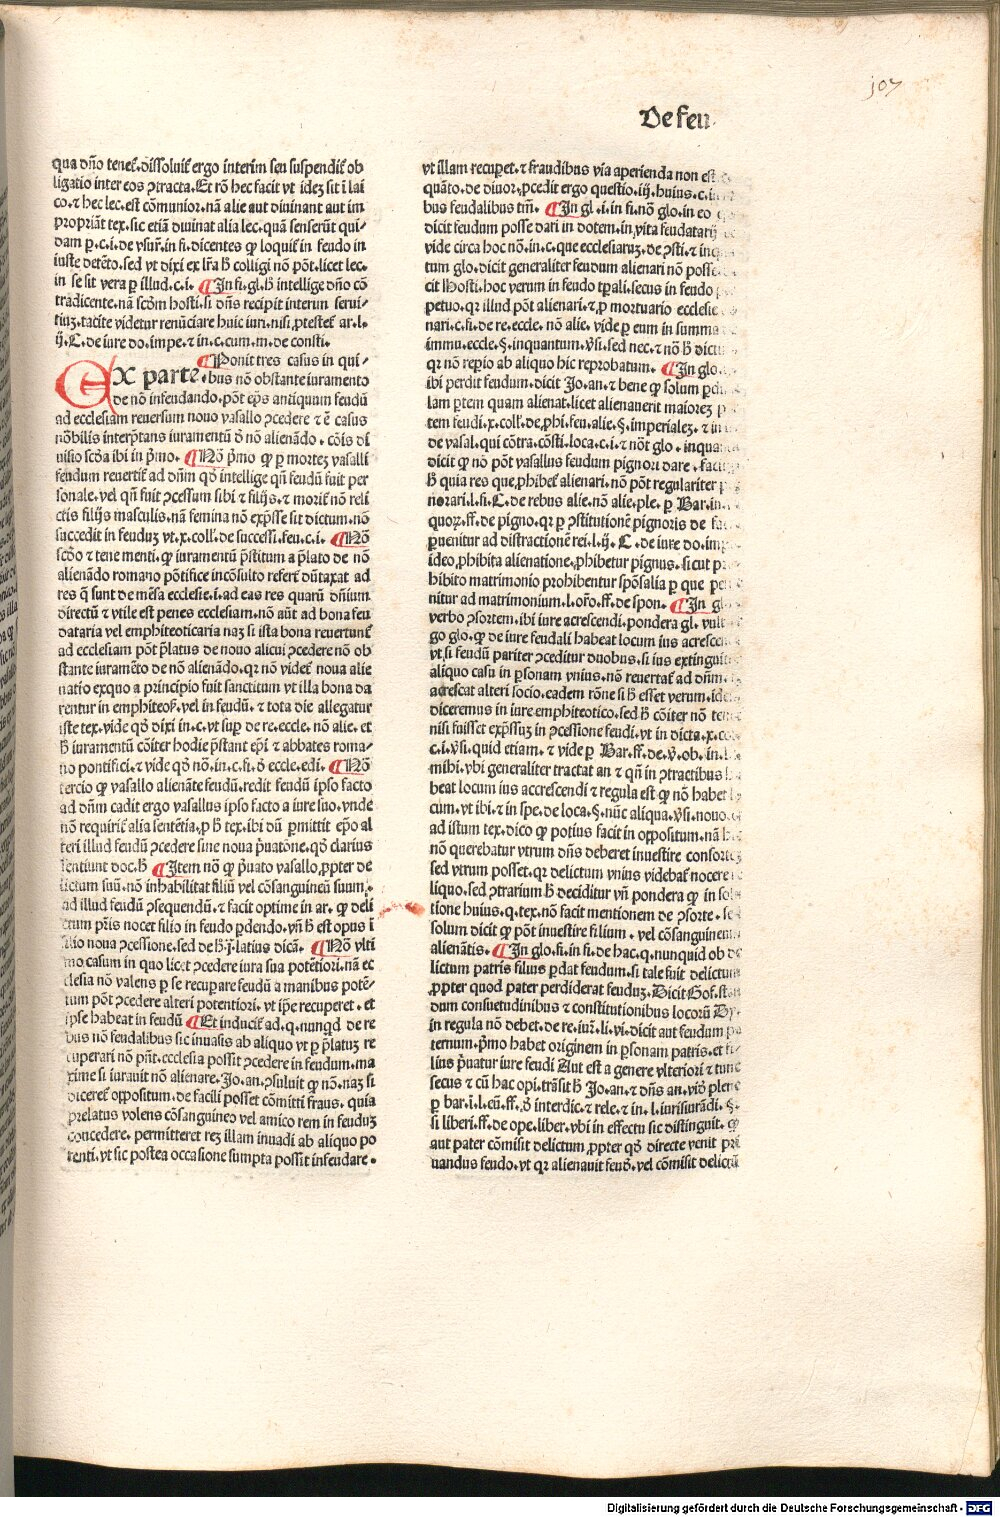 107
De feu
qua dño tenet̃. dissoluit̃ ergo interim seu suspendit̃ ob
ligatio inter eos ꝯtracta. Et rõ hec facit vt idez sit ĩ lai
co. ⁊ hec lec. est cõmunior. nã alie aut diuinant aut im
propriãt tex. sic etiã diuinat alia lec. quã senserũt qui/
dam ꝑ. c. i. de vsur̃. in fi. dicentes ꝙ loquit̃ in feudo in
iuste detẽto. sed vt dixi ex lr̃a h̃ colligi nõ põt. licet lec.
in se sit vera ꝑ illud. c. i. ¶ In fi. gl. h̃ intellige dño cõ
tradicente. nã scðm hosti. si dñs recipit interim serui/
tiuz. tacite videtur renũciare huic iuri. nisi ꝓtestet̃ ar. l.
ij. C. de iure do. impe. ⁊ in. c. cum. m. de consti.
Ex parte. ¶ Ponit tres casus in qui/
bus nõ obstante iuramento
de nõ infeudando. põt ep̃s antiquum feudũ
ad ecclesiam reuersum nouo vasallo ꝯcedere ⁊ ẽ casus
nõbilis interp̃tans iuramentũ ð nõ alienãdo. cõis di
uisio scða ibi in p̃mo. ¶ Nõ p̃mo ꝙ ꝑ mortez vasalli
feudum reuertit̃ ad dñm qð intellige qñ feudũ fuit per
sonale. vel qñ fuit ꝯcessum sibi ⁊ filijs. ⁊ morit̃ nõ reli
ctis filijs masculis. nã femina nõ exp̃sse sit dictum. nõ
succedit in feuduz vt. x. coll̃. de successi. feu. c. i. ¶ Nõ
scðo ⁊ tene menti. ꝙ iuramentũ p̃stitum a p̃lato de nõ
alienãdo romano põtifice incõsulto refert̃ dũtaxat ad
res q̃ sunt de mẽsa ecclesie. i. ad eas res quarũ dñium
directũ ⁊ vtile est penes ecclesiam. nõ aũt ad bona feu
dataria vel emphiteoticaria naz si ista bona reuertunt̃
ad ecclesiam põt p̃latus de nouo alicui ꝯcedere nõ ob
stante iuramẽto de nõ alienãdo. qr nõ videt̃ noua alie
natio exquo a principio fuit sanctitum vt illa bona da
rentur in emphiteos̃. vel in feudũ. ⁊ tota die allegatur
iste tex. vide qð dixi in. c. vt sup̃ de re. eccle. nõ alie. et
h̃ iuramentũ cõiter hodie p̃stant ep̃i ⁊ abbates roma/
no pontifici. ⁊ vide qð nõ. in. c. fi. ð eccle. edi. ¶ Nõ
tercio ꝙ vasallo alienãte feudũ. redit feudũ ipso facto
ad dñm cadit ergo vasallus ipso facto a iure suo. vnde
nõ requirit̃ alia sentẽtia. ꝓ h̃ tex. ibi dũ ꝑmittit ep̃o al
teri illud feudũ ꝯcedere sine noua p̃uatõne. qð clarius
sentiunt doc. h̃ ¶ Item nõ ꝙ p̃uato vasallo ꝓpter de
lictum suũ. nõ inhabilitat filiũ vel cõsanguineũ suum.
ad illud feudũ ꝯsequendũ. ⁊ facit optime in ar. ꝙ deli
ctum pr̃is nocet filio in feudo ꝑdendo. vñ h̃ est opus ĩ
filio noua ꝯcessione. sed de h̃. j̃. latius dicã. ¶ Nõ vlti
mo casum in quo licet ꝯcedere iura sua potẽtiori. nã ec
clesia nõ valens ꝑ se recupare feudũ a manibus potẽ/
tum põt ꝯcedere alteri potentiori. vt ip̃e recuperet. et
ipse habeat in feudũ ¶ Et inducit̃ ad. q. nunqd̃ de re
bus nõ feudalibus sic inuasis ab aliquo vt ꝑ p̃latuz re
cuperari nõ pñt. ecclesia possit ꝯcedere in feudum. ma
xime si iurauit nõ alienare. Jo. an. ꝯsuluit ꝙ nõ. naz si
diceret̃ oppositum. de facili posset cõmitti fraus. quia
prelatus volens cõsanguineo vel amico rem in feuduz
concedere. permitteret rez illam inuadi ab aliquo po
tenti. vt sic postea occasione sumpta possit infeudare.
vt illam recuꝑet. ⁊ fraudibus via aperienda non est
quãto. de diuor. ꝓcedit ergo questio. iij. huius. c. i.
bus feudalibus tm̃. ¶ In gl. i. in fi. nõ glo. in eo
dicit feudum posse dari in dotem. in vita feudatarij
vide circa hoc nõ. in. c. que ecclesiaruz. de ꝯsti. ⁊ in
tum glo. dicit generaliter feudum alienari nõ posse.
cit Hosti. hoc verum in feudo tꝑali. secus in feudo
petuo. qr illud põt alienari. ⁊ ꝓ mortuario ecclesie
nari. c. fi. de re. eccle. nõ alie. vide ꝑ eum in summa
immu. eccle. §. inquantum. ṽsi. sed nec. ⁊ nõ h̃ dictũ
qr nõ repio ab aliquo hic reprobatum. ¶ In glo.
ibi perdit feudum. dicit Jo. an. ⁊ bene ꝙ solum ꝑdit
lam ꝑtem quam alienat. licet alienauerit maiorez
tem feudi. x. coll̃. de. ꝓhi. feu. alie. §. imperialez. ⁊ in
de vasal. qui cõtra. cõsti. loca. c. i. ⁊ nõt glo. inquan
dicit ꝙ nõ põt vasallus feudum pignori dare. facit
h̃ quia res que. ꝓhibet̃ alienari. nõ põt regulariter
norari. l. fi. C. de rebus alie. nõ alie. ple. ꝑ Bar. in.
quoꝝ. ff. de pigno. qr ꝑ ꝯstitutionẽ pignoris de fa
ꝑuenitur ad distractionẽ rei. l. ij. C. de iure do. imp
ideo. ꝓhibita alienatione. ꝓhibetur pignus. sicut p
hibito matrimonio prohibentur spõsalia ꝑ que per
nitur ad matrimonium. l. or̃o. ff. de spon. ¶ In gl
verbo ꝯsortem. ibi iure acrescendi. pondera gl. vult
go glo. ꝙ de iure feudali habeat locum ius acrescen
vt. si feudũ pariter ꝯceditur duobus. si ius extinguit
aliquo casu in ꝑsonam vnius. nõ reuertat̃ ad dñm.
acrescat alteri socio. eadem rõne si h̃ esset verum. idẽ
diceremus in iure emphiteotico. sed h̃ cõiter nõ ten
nisi fuisset exp̃ssuz in ꝯcessione feudi. vt in dicta. x. co
c. i. ṽsi. quid etiam. ⁊ vide ꝑ Bar. ff. de. ṽ. ob. in. l.
mihi. vbi generaliter tractat an ⁊ qñ in ꝯtractibus
beat locum ius accrescendi ⁊ regula est ꝙ nõ habet
cum. vt ibi. ⁊ in spe. de loca. §. nũc aliqua. ṽsi. nouo.
ad istum tex. dico ꝙ potius facit in oppositum. nã h
nõ querebatur vtrum dñs deberet inuestire consortez
sed vtrum posset. qr delictum vnius videbat̃ nocere
liquo. sed ꝯtrarium h̃ deciditur vñ pondera ꝙ in sol
tione huius. q. tex. nõ facit mentionem de ꝯsorte. se
solum dicit ꝙ põt inuestire filium. vel cõsanguineum
alienãtis. ¶ In glo. fi. in fi. de hac. q. nunquid ob de
lictum patris filius ꝑdat feudum. si tale fuit delictum
ꝓpter quod pater perdiderat feuduz. Dicit Gof. stan
dum consuetudinibus ⁊ constitutionibus locorũ
in regula nõ debet. de re. iur̃. li. vi. dicit aut feudum pa
ternum. p̃mo habet originem in ꝑsonam patris. et fi
lius p̃uatur iure feudi Aut est a genere vlteriori ⁊ tunc
secus ⁊ cũ hac opi. trãsit h̃ Jo. an. ⁊ dñs an. við plene
ꝑ bar. i. l. eũ. ff. ð interdic. ⁊ rele. ⁊ in. l. iurisiurãdi. §.
si liberi. ff. de ope. liber. vbi in effectu sic distinguit. ꝙ
aut pater cõmisit delictum ꝓpter qð directe venit pri
uandus feudo. vt qr alienauit feuð. vel cõmisit delictũ
Digitalisierung gefördert durch die Deutsche Forschungsgemeinschaft - DFG